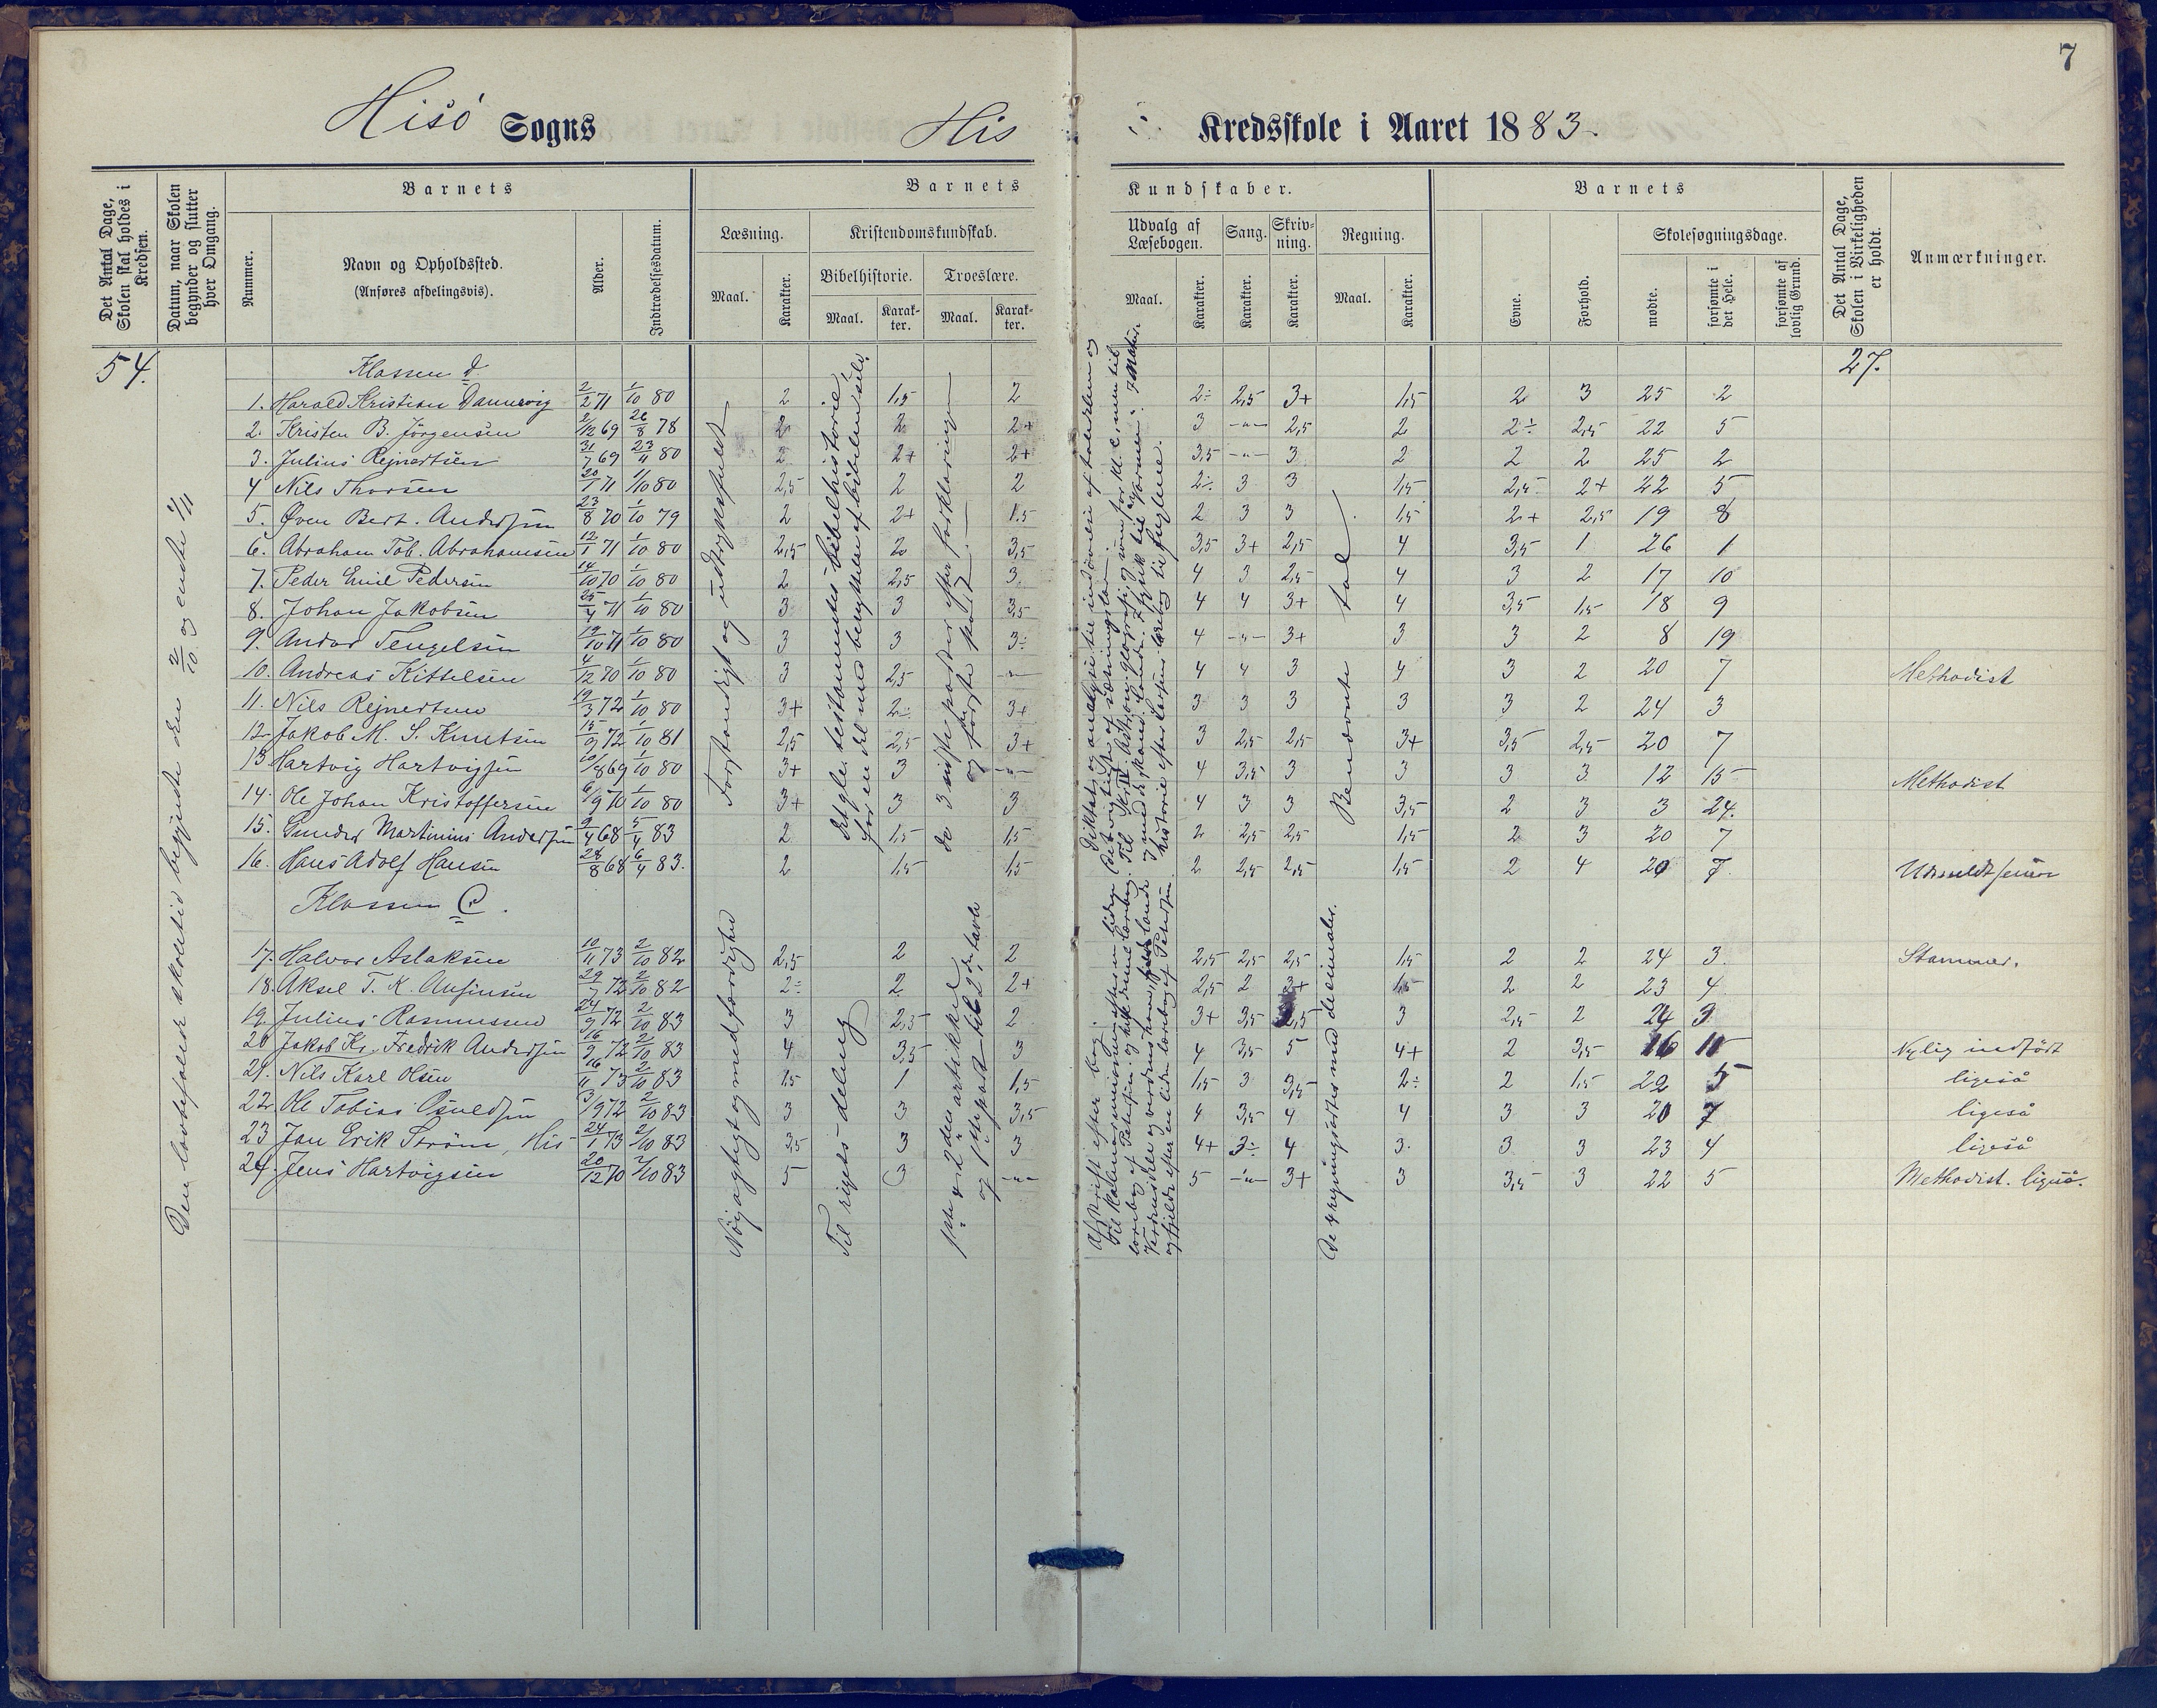 7
Hisö Sogns His Kredsskole i Aaret 1883.
Det Antal Dage, Skolen skal holdes i Kredsen.
Datum, naar Skolen begynder og slutter hver Omgang.
Barnets
Nummer.
Navn og Opholdssted.
(Anføres afdelingsvis).
Alder.
Indtrædelsesdatum.
Barnets Kundskaber.
Læsning. Kristendomskundskab. Udvalg af Læsebogen. Sang. Skrivning. Regning.
Bibelhistorie. Troeslære.
Maal. Karakter. Maal. Karakter. Maal. Karakter. Maal. Karakter. Karakter. Karakter. Maal. Karakter.
Barnets
Evne. Forhold. Skolesøgningsdage.
mødte. forsømte i det Hele. forsømte af lovlig Grund.
Det Antal Dage, Skolen i Virkeligheden er holdt.
Anmærkninger.
54. 27.
Den lovbefalede skoletid begyndte den 2/10 og endte 1/11
Klassen d
1. Harald Kristian Dannevig 2/2 71 1/10 80 2 1,5 2 2÷ 2,5 3+ 1,5 2 3 25 2
2. Kristen B. Jørgensen 2/12 69 26/8 78 2 2 2+ 3 -"- 2,5 2 2÷ 2,5 22 5
3. Julius Rejnertsen 31/7 69 23/11 80 2 2+ 2+ 3,5 -"- 3 2 2 2 25 2
4 Nils Thorsen 20/1 71 1/10 80 2,5 2 2 2÷ 3 3 1,5 2,5 2+ 22 5
5. Øven Bert. Andersen 23/8 70 1/10 79 2 2+ 1.5 2 3 3 1,5 2+ 2,5 19 8
6. Abraham Tob. Abrahamsen 12/1 71 1/10 80 2,5 2 3,5 3,5 3+ 2,5 4 3,5 1 26 1
7. Peder Emil Pedersen 14/10 70 1/10 80 2 2,5 3. 4 3 2,5 4 3 2 17 10
8. Johan Jakobsen 25/4 71 1/10 80 3 3 3,5 4 4 3+ 4 3,5 1,5 18 9
9. Andor Tengelsen 19/10 71 1/10 80 3 3 3÷ 4 -"- 3+ 3 3 2 8 19
10. Andreas Kittelsen 4/12 70 1/10 80 3 2,5 -"- 4 4 3 4 3 2 20 7 Methodist
11. Nils Rejnertsen 19/3 72 1/10 80 3+ 2÷ 3+ 3 3 3 3 3 2 24 3
12. Jakob M. S. Knutsen 15/9 72 1/10 81 2,5 2,5 3+ 3 2,5 2,5 3+ 3,5 2,5 20 7
13 Hartvig Hartvigsen 10/8 69 1/10 80 3+ 3 -"- 4 3,5 3 3 3 3 12 15 Methodist
14. Ole Johan Kristoffersen 6/9 70 1/10 80 3+ 3 3 4 3 3 3,5 2 3 3 24.
15. Gunder Martinius Andersen 9/4 68 5/4 83 2 1,5 1,5 2 2,5 2,5 1,5 2 3 20 7
16. Hans Adolf Hansen 28/8 68 6/4 83. 2 1,5 1,5 2 2,5 2,5 1,5 2 4 20 7.
Forstandigt og udtryksfuldt
Det gle. testamentes bibelhistorie,
for en del med benyttelse af bibelen selv.
De 3 sidste parter efter forklaringen
Benævnte tal
Klassen C.
17. Halvor Aslaksen 10/11 73 2/10 82 2,5 2 2 2,5 2,5 2,5 1,5 2 2 24 3. Stammer.
18. Aksel T. K. Ansinsen 29/7 72 2/10 82 2÷ 2 2+ 2,5 2 3+ 1,5 2 2 23 4
19. Julius Rasmussen 24/9 72 2/10 83 3 2,5 2 3+ 3,5 2,5 3 2,5 2 24 3
20 Jakob Kr. Fredrik Andersen 16/9 72 2/10 83 4 3,5 3 4 3,5 5 4+ 2 3,5 16 11 Nylig indført
21. Nils Karl Olsen 16/11 73 2/10 83 1,5 1 1,5 1,5 3 3,5 2÷ 2 1,5 22 5 ligeså
22. Ole Tobias Osuldsen 3/9 72 2/10 83 3 3 3,5 4 3,5 4 4 3 3 20 7 ligeså
23 Jan Erik Strøm, His 24/1 73 2/10 83 3,5 3 3 4+ 3÷ 4 3. 3 3 23 4 ligeså
24. Jens Hartvigsen 20/12 70 2/10 83 5 3 -"- 5 -"- 3+ 3 3,5 3 22 5 Methodist. ligeså.
Nøjagtigt og med færdighed
Til rigets deling
1ste & 2den artikkel
De 4 regningsarter med decimaler.
Afskrift efter bog.